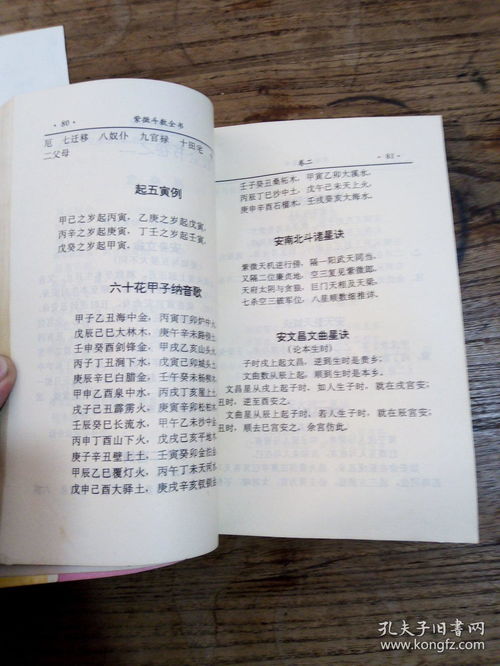 · 80 ·
紫微斗数全书
厄 七迁移 八奴仆 九官禄 十田宅
二父母
起五寅例
甲己之岁起丙寅，乙庚之岁起戊寅，
丙辛之岁起庚寅，丁壬之岁起壬寅，
戊癸之岁起甲寅。
六十花甲子纳音歌
甲子乙丑海中金，丙寅丁卯炉中
戊辰己巳大林木，庚午辛未路傍
壬申癸酉剑锋金，甲戌乙亥山头
丙子丁丑涧下水，戊寅己卯城头
庚辰辛巳白腊金，壬午癸未杨柳
甲申乙酉泉中水，丙戌丁亥屋上
戊子己丑霹雳火，庚寅辛卯松柏
壬辰癸巳长流水，甲午乙未沙中
丙申丁酉山下火，戊戌己亥平地
庚子辛丑壁上土，壬寅癸卯金箔
甲辰乙巳覆灯火，丙午丁未天河
戊申己酉大驿土，庚戌辛亥钗钏
卷二
· 81 ·
壬子癸丑桑柘木，甲寅乙卯大溪水，
丙辰丁巳沙中土，戊午己未天上火，
庚申辛酉石榴木，壬戌癸亥大海水。
安南北斗诸星诀
紫微天机逆行傍，隔一阳武天同当，
又隔二位廉贞地，空三复见紫微郎。
天府太阴与贪狼，巨门天相及天梁，
七杀空三破军位，八星顺数细推详。
安文昌文曲星诀
(论本生时)
子时戌上起文昌，逆到生时是贵乡；
文曲数从辰上起，顺到生时是本乡。
文昌星从戌上起子时，如人生子时，就在戌宫安；
丑时，逆至酉安之。
文曲星从辰上起子时，若人生子时，就在辰宫安；
丑时，顺去巳宫安之，余宫仿此。
孔夫子旧书网
www.kongfz.com